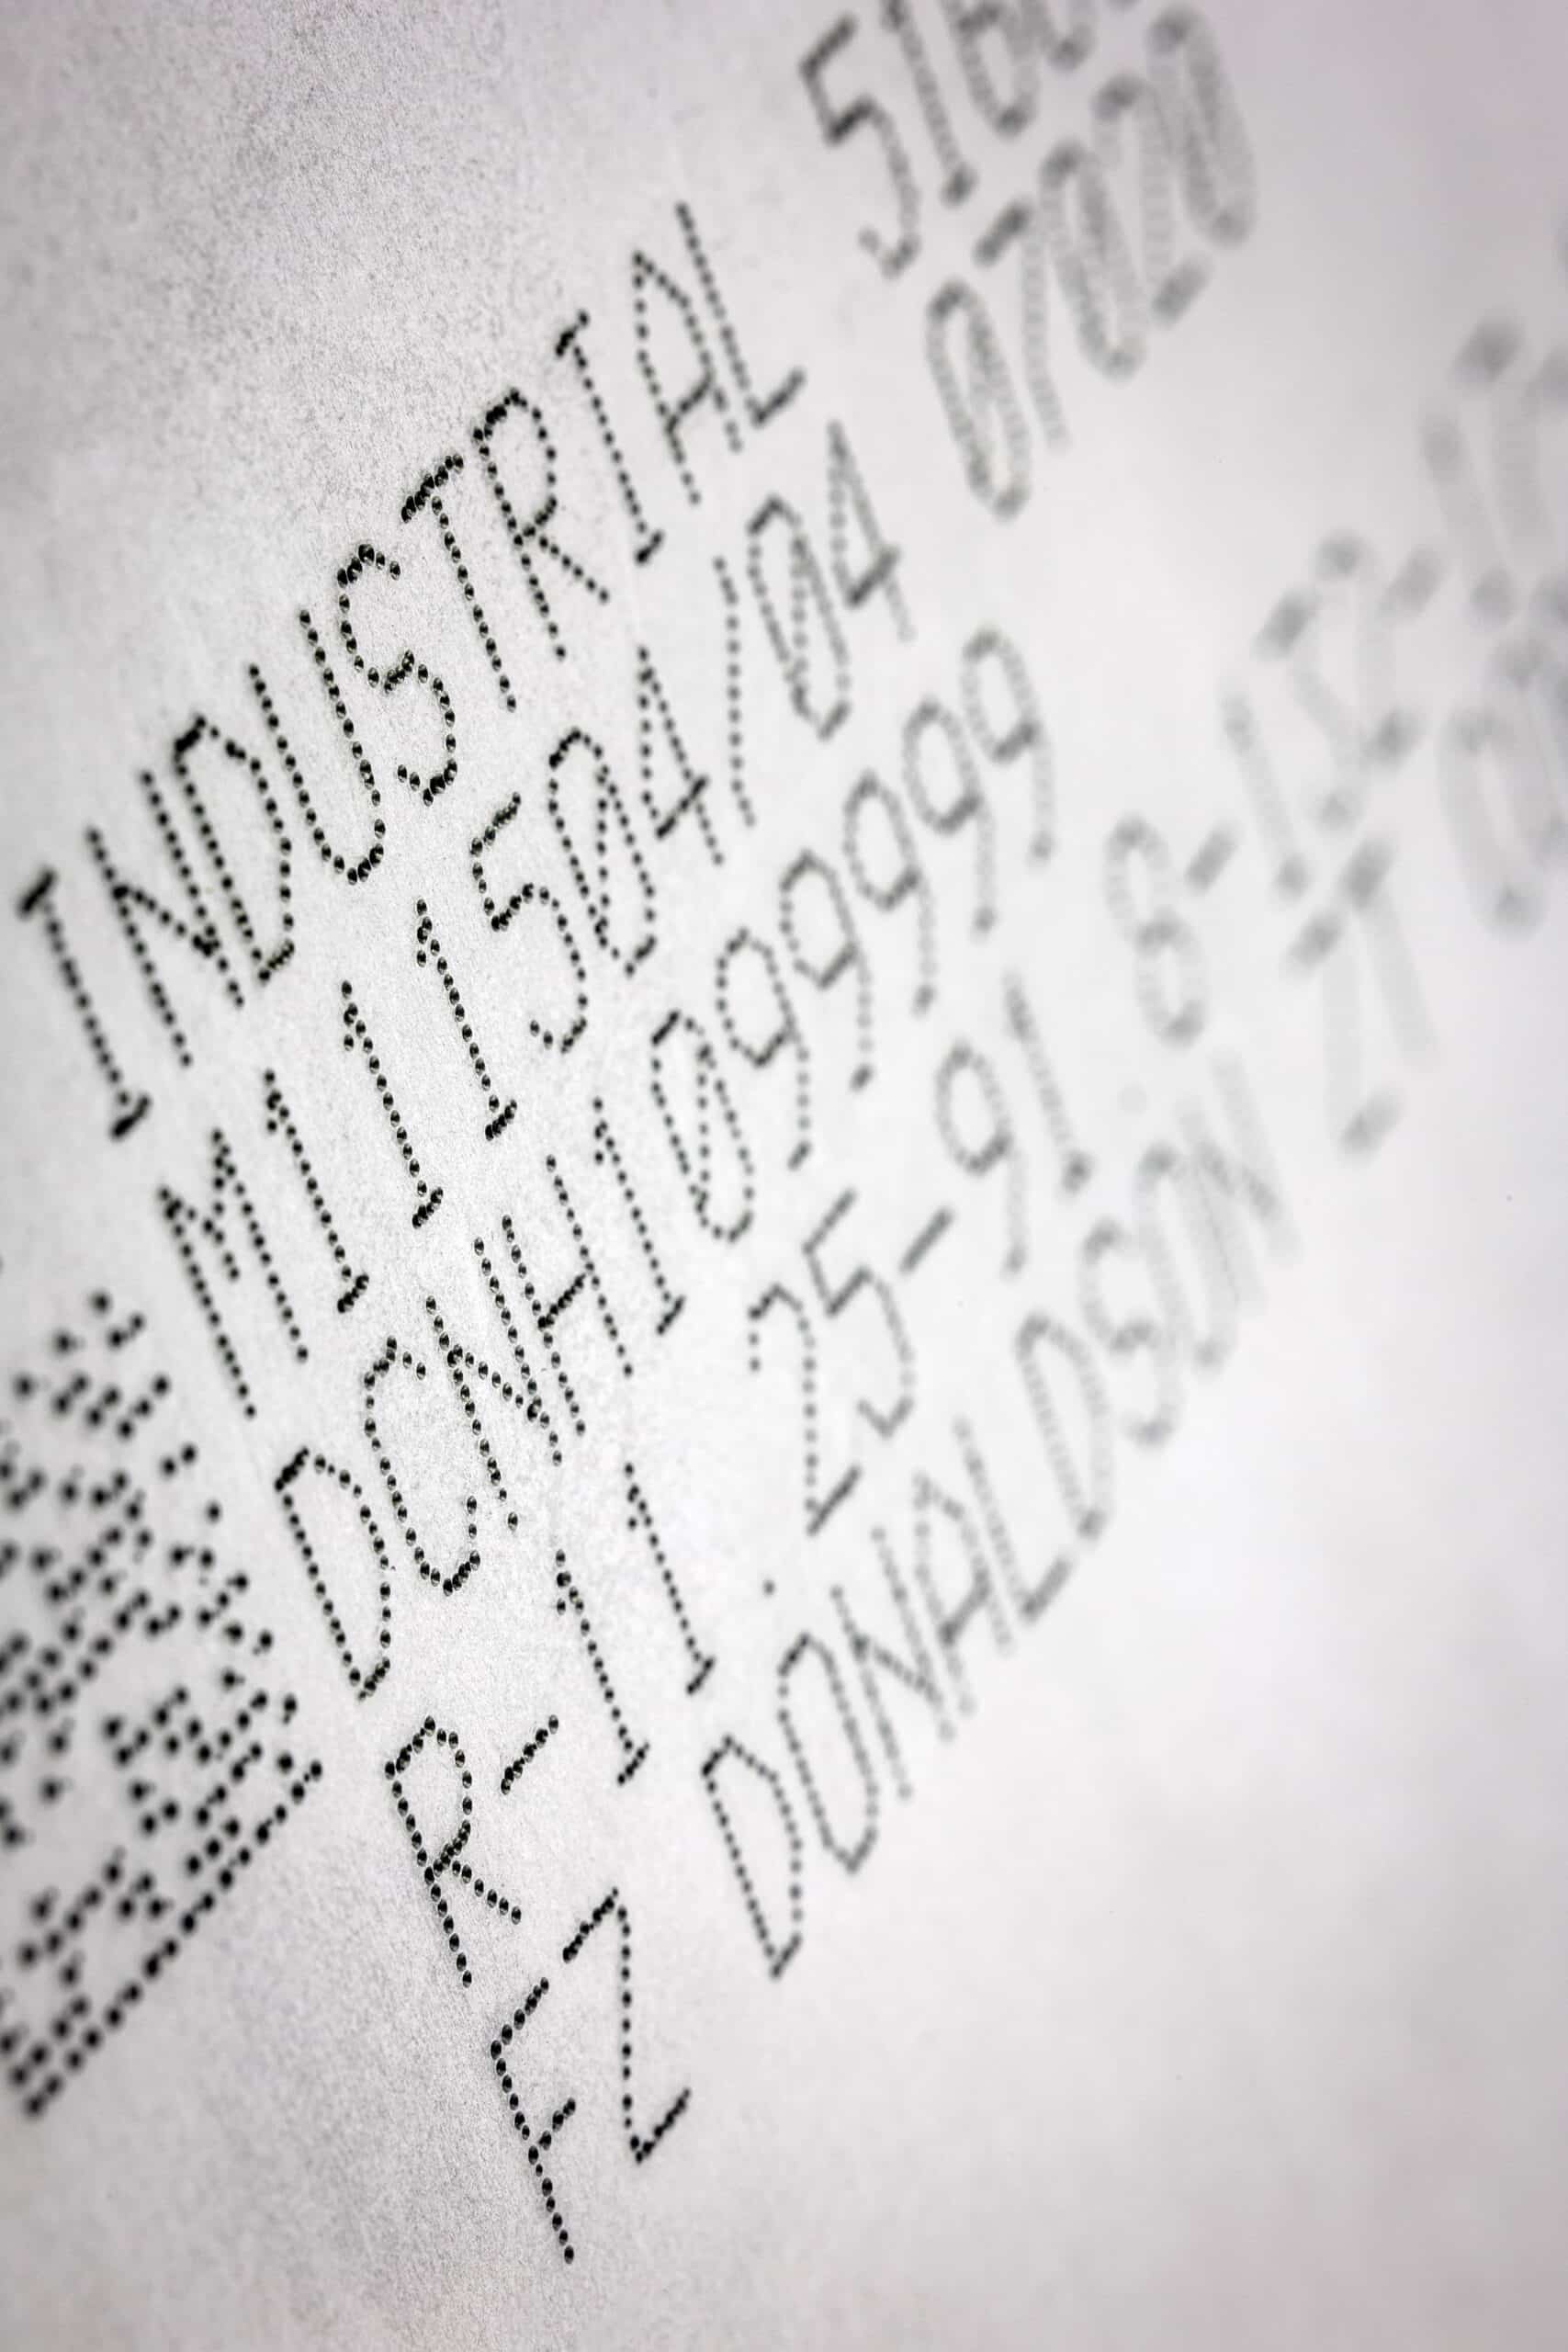 INDUSTRIAL
M111504/04 07020
DCNH1099999
R-11.25-91.
FZ DONALDSON